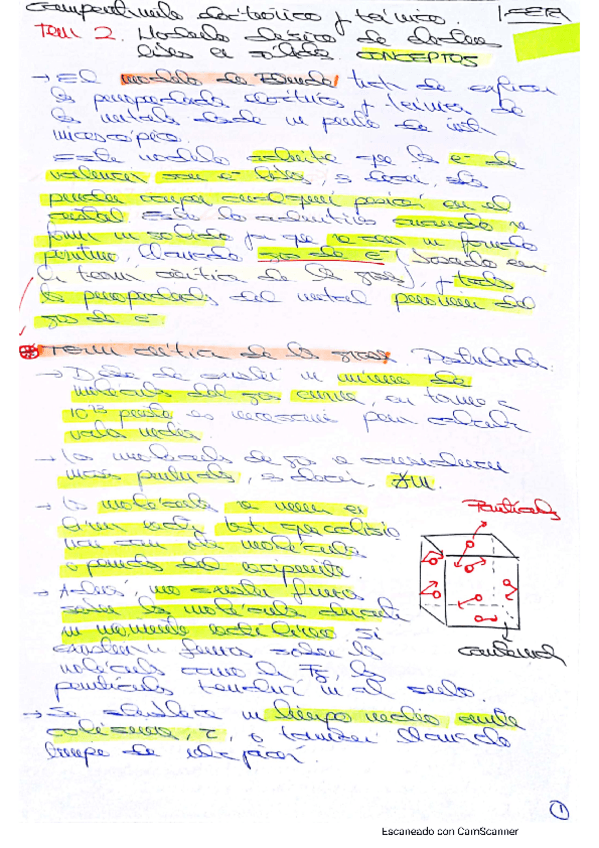 Comportamiento electrónico y térmico.
Tema 2. Modelo clásico de electrones
libres en sólidos. CONCEPTOS
→ El modelo de Drude trata de explicar
las propiedades eléctricas y térmicas de
los metales desde un punto de vista
microscópico.
Este modelo que los e⁻ de
valencia son e⁻ libres, es decir,
pueden ocupar cualquier posición en el
cristal. Esto lo cuando se
forma un sólido ya que se crea un
, llamado gas de e⁻ (basado en
la teoría cinética de los gases), y todas
las propiedades del metal provienen del
gas de e⁻
Teoría cinética de los gases. Postulados:
→ Debe de existir un número de
moléculas del gas , en torno a
10²³ es necesario para calcular
→ Las moléculas de gas se consideran
masas puntuales, es decir,
→ Las moléculas se mueven en
línea recta, hasta que colisionan
con otra molécula
o pared del recipiente.
→ Además, no existen fuerzas
sobre las moléculas durante
un movimiento rectilíneo. Si
existiera fuerzas sobre las
moléculas como la Fg, las
partículas tenderían al suelo.
→ Se establece un tiempo medio entre
colisiones, τ, o también llamado
tiempo de relajación.
Partículas
1
Escaneado con CamScanner